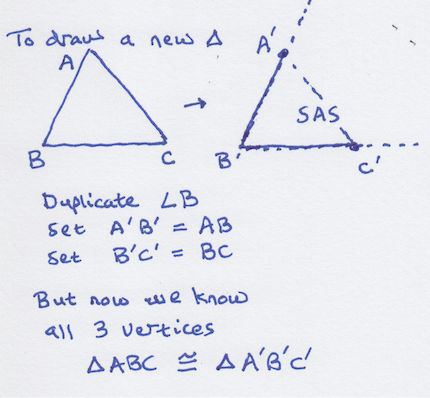 To draw a new Δ
A
B
C
→
A'
SAS
B'
C'
Duplicate ∠B
Set A'B' = AB
Set B'C' = BC
But now we know
all 3 vertices
ΔABC ≅ ΔA'B'C'